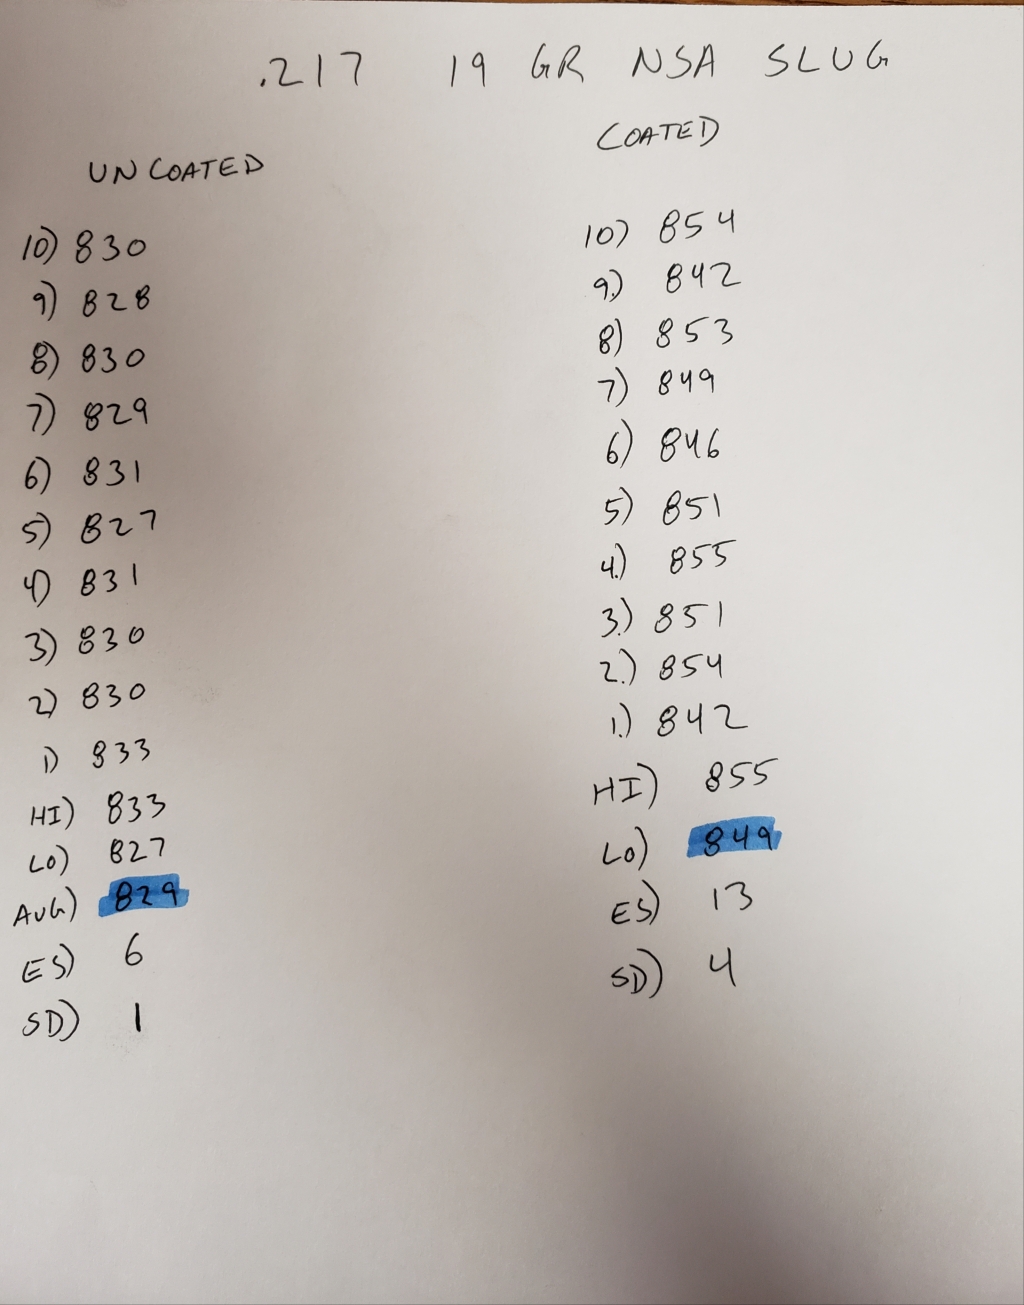 .217 19 GR NSA SLUG
UNCOATED
10) 830
9) 828
8) 830
7) 829
6) 831
5) 827
4) 831
3) 830
2) 830
1) 833
HI) 833
LO) 827
AVG) 829
ES) 6
SD) 1
COATED
10) 854
9.) 842
8) 853
7) 849
6) 846
5) 851
4.) 855
3.) 851
2.) 854
1.) 842
HI) 855
LO) 849
ES) 13
SD) 4